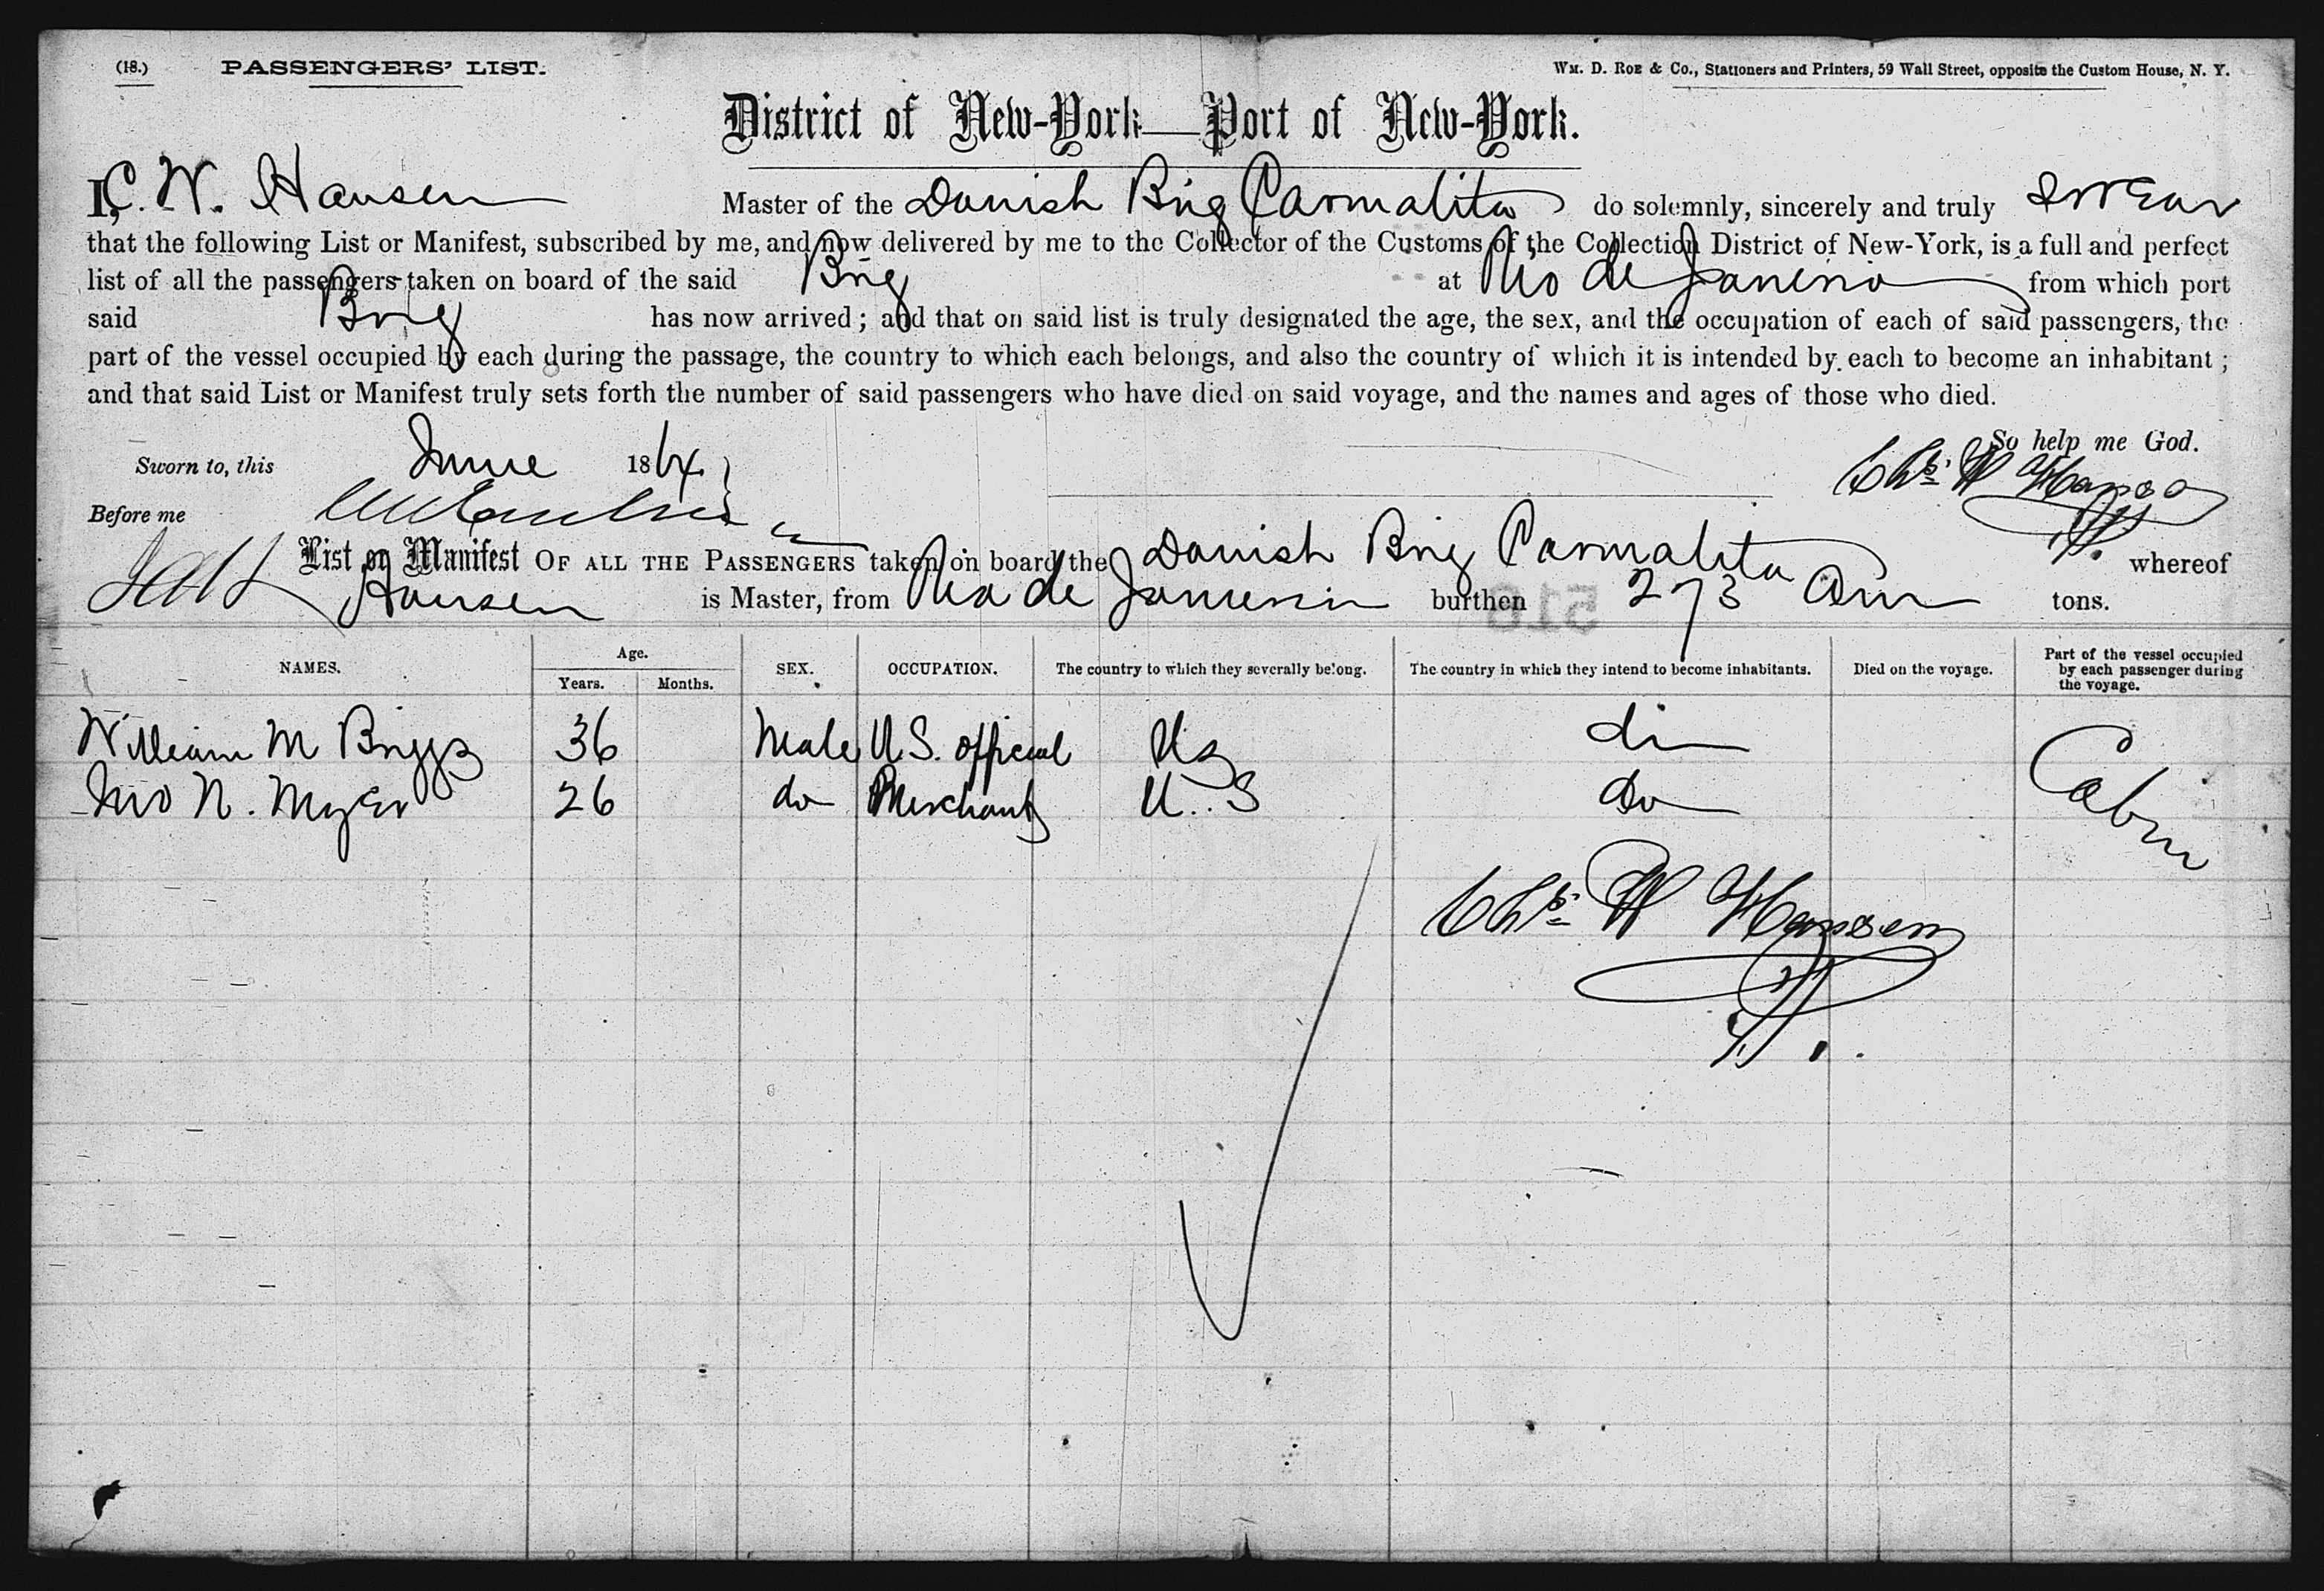 (18.) PASSENGERS' LIST. WM. D. ROE & Co., Stationers and Printers, 59 Wall Street, opposite the Custom House, N. Y.
District of New-York—Port of New-York.
I, C. W. Hansen Master of the Danish Brig Carmalita do solemnly, sincerely and truly swear
that the following List or Manifest, subscribed by me, and now delivered by me to the Collector of the Customs of the Collection District of New-York, is a full and perfect
list of all the passengers taken on board of the said Brig at Rio de Janeiro from which port
said Brig has now arrived; and that on said list is truly designated the age, the sex, and the occupation of each of said passengers, the
part of the vessel occupied by each during the passage, the country to which each belongs, and also the country of which it is intended by each to become an inhabitant;
and that said List or Manifest truly sets forth the number of said passengers who have died on said voyage, and the names and ages of those who died.
So help me God.
Sworn to, this June 1864 Chs. W Hansen
Before me
List or Manifest OF ALL THE PASSENGERS taken on board the Danish Brig Carmalita whereof
Hansen is Master, from Rio de Janeiro burthen 273 tons.
516
NAMES. Age. Years. Months. SEX. OCCUPATION. The country to which they severally belong. The country in which they intend to become inhabitants. Died on the voyage. Part of the vessel occupied by each passenger during the voyage.
William M Briggs 36 Male U.S. official US do Cabin
Jno N. Myer 26 do Merchant U.S do
Chs. W Hansen